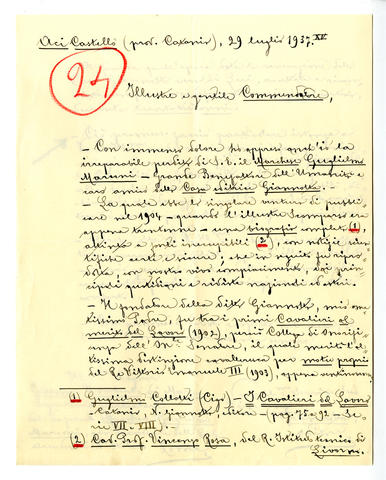 Aci Castello (prov. Catania), 29 luglio 1937.XV
24
Illustre e gentile Commendatore,
- Con immenso dolore ho appreso anch'io la
irreparabile perdita di S. E. il Marchese Guglielmo
Marconi - grande Benefattore dell'Umanità e
caro amico della Casa editrice Giannotta. -
- La quale ebbe lo singolare ventura di pubbli-
care nel 1904 - quando l'illustre Scomparso era
appena trentenne - una biografia completa (1),
attinta a fonti ineccepibili (2), con notizie scien-
tifiche esatte e sicure, che in seguito fu ripro-
dotta, con nostro vivo compiacimento, dai prin-
cipali quotidiani e riviste nazionali ed esteri. -
- Il fondatore della Ditta Giannotta, mio ama-
tissimo Padre, fu tra i primi Cavalieri al
merito del Lavoro (1902), perciò Collega di Onorifi-
cenza dell'On. Senatore, il quale meritò l'al-
tissima distinzione cavalleresca per motu proprio
del Re Vittorio Emanuele III (1903), appena
(1) Guglielmi Collotti (Ciro) - I Cavalieri del Lavoro
- Catania, N. Giannotta, editore - (pag. 75 e 92 - Se-
rie VII - VIII). -
(2) Cav. Prof. Vincenzo Rosa, del R. Istituto tecnico di
Livorno. -